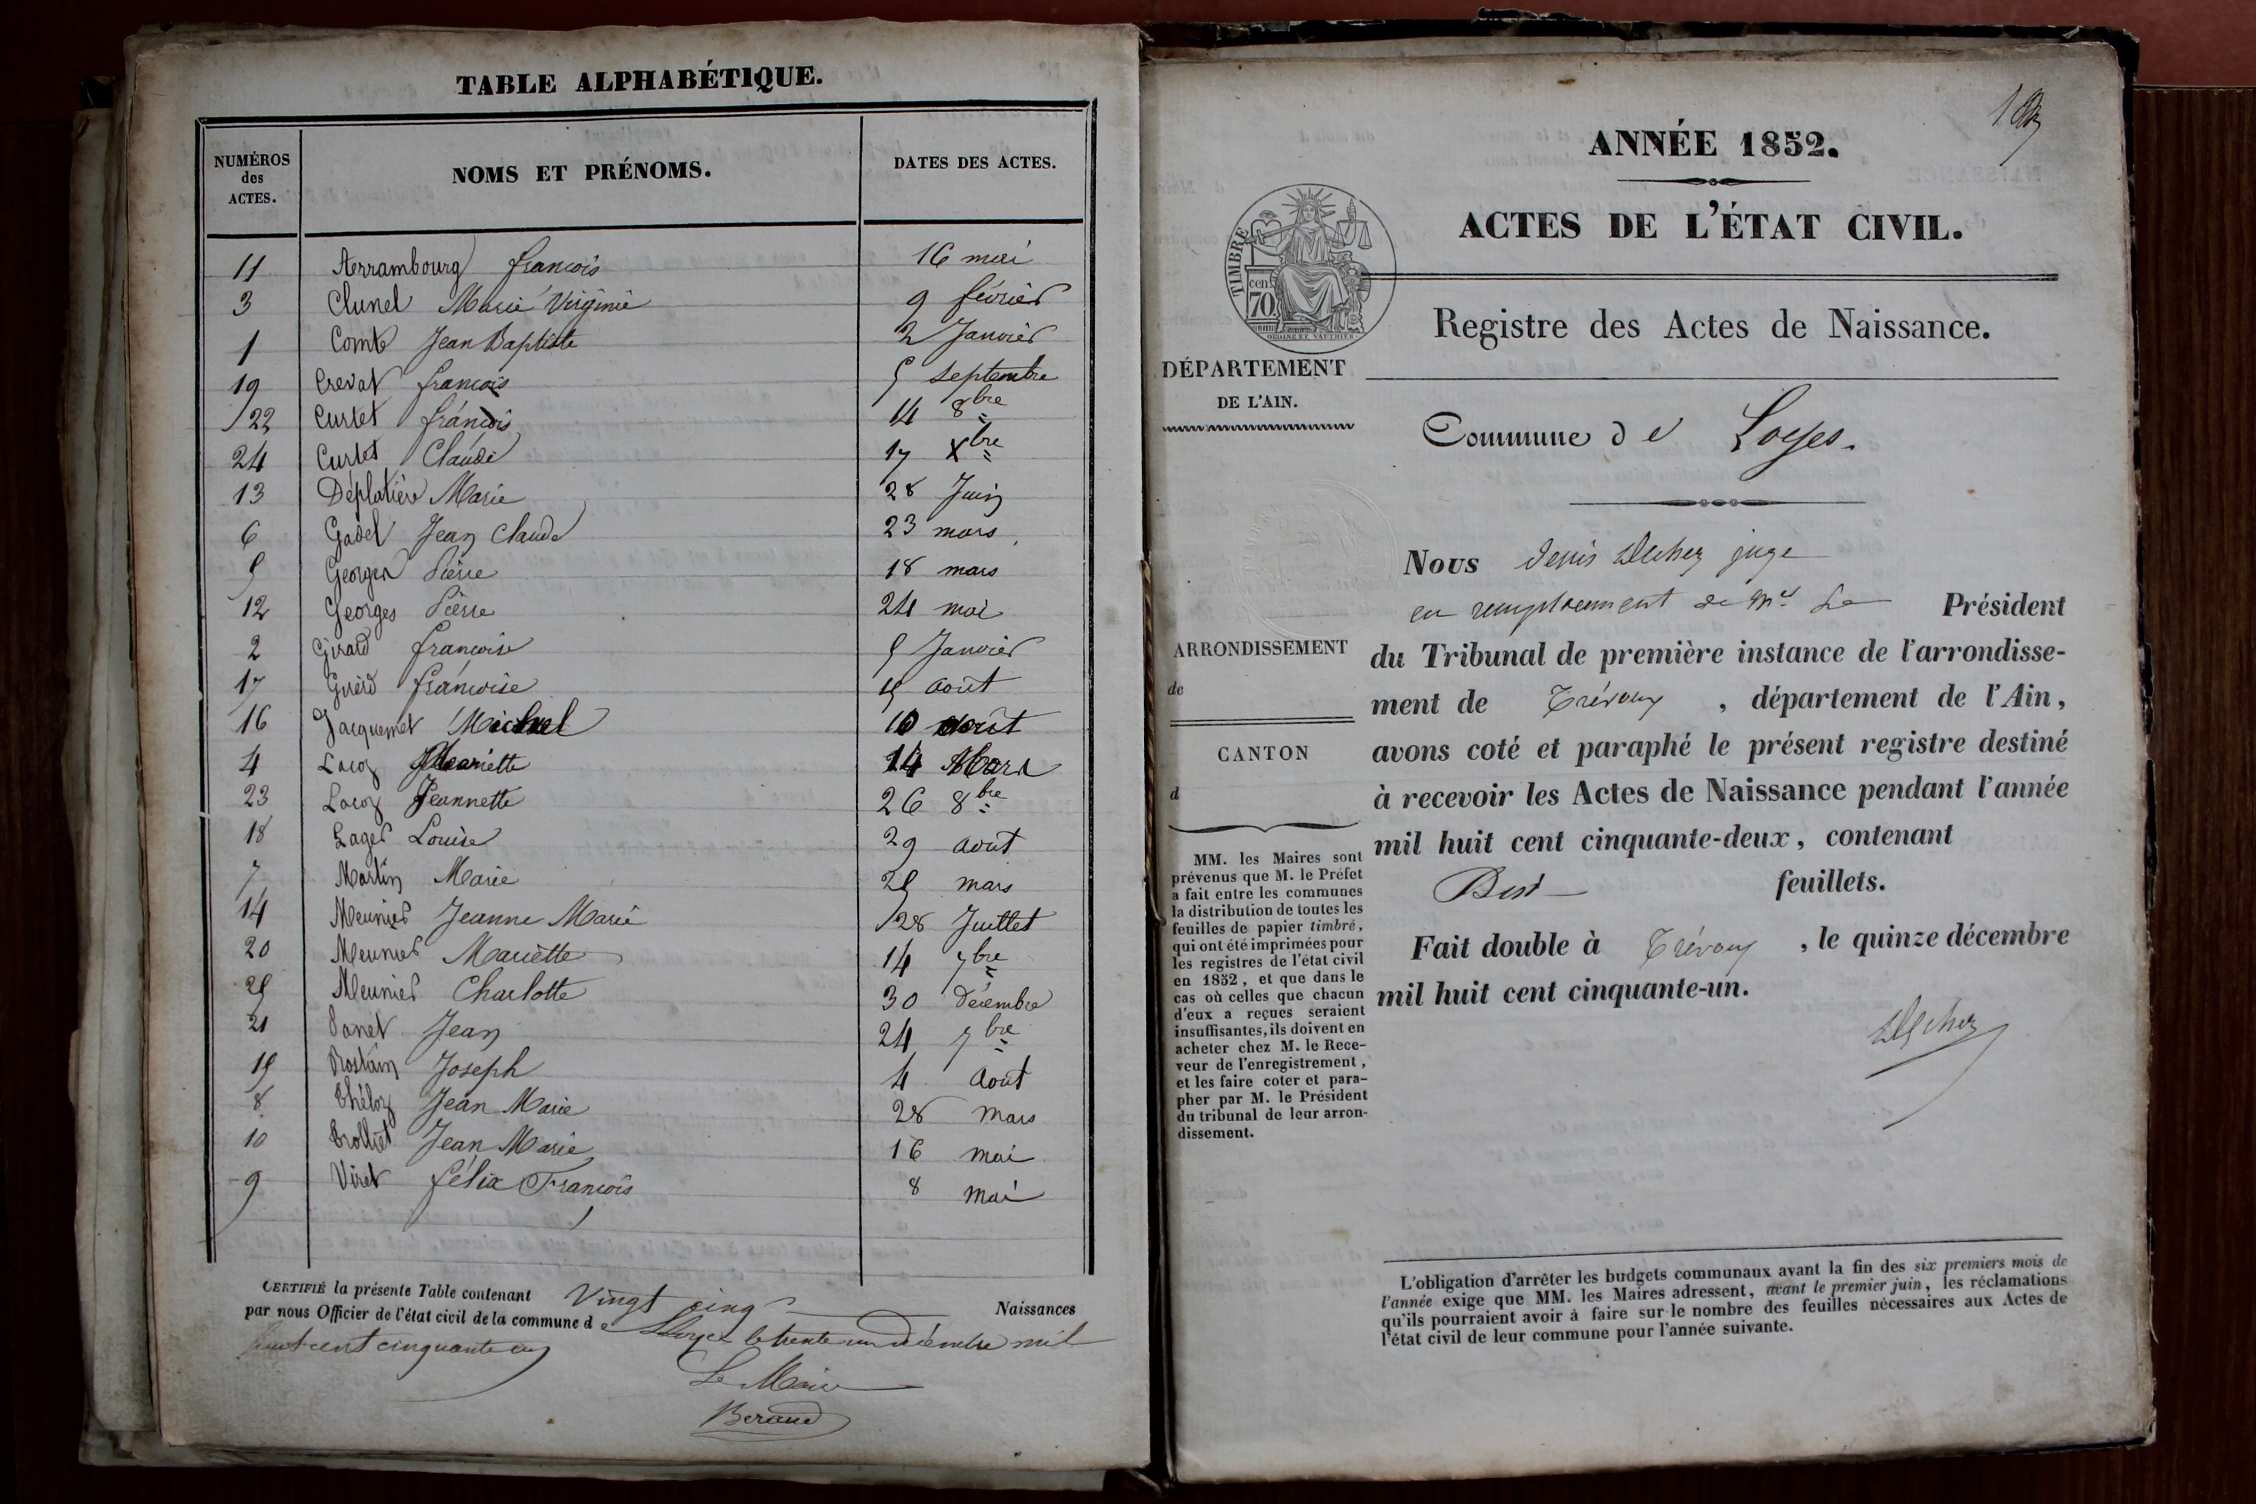 TABLE ALPHABÉTIQUE.
NUMÉROS des ACTES.
NOMS ET PRÉNOMS.
DATES DES ACTES.
11 Aerrambourg françois 16 mai
3 Clunel Marie Virginie 9 février
1 Comte Jean Baptiste 2 Janvier
19 Crevat françois 5 septembre
22 Curtet françois 14 8bre
24 Curtet Claude 17 Xbre
13 Déplatière Marie 28 Juin
6 Gadel Jean Claude 23 mars
5 Georges Pierre 18 mars
12 Georges Pierre 24 mai
2 Girard françoise 5 Janvier
17 françoise 15 août
16 Jacquemet Michel 10 août
4 Lacoz Mariette 14 Mars
23 Lacoz Jeannette 26 8bre
18 Lager Louise 29 août
7 Martin Marie 25 mars
14 Meunier Jeanne Marie 28 Juillet
20 Meunier Mariette 14 7bre
25 Meunier Charlotte 30 Décembre
21 Panet Jean 24 7bre
15 Rostain Joseph 4 Août
8 Théloz Jean Marie 28 mars
10 Trolliet Jean Marie 16 mai
9 Viret félix François 8 mai
CERTIFIÉ la présente Table contenant Vingt cinq Naissances
par nous Officier de l'état civil de la commune de Loyes le trente un décembre mil
huit cent cinquante un
Le Maire
Beraud
ANNÉE 1852.
ACTES DE L'ÉTAT CIVIL.
TIMBRE
cen.
70
Registre des Actes de Naissance.
DÉPARTEMENT
DE L'AIN.
Commune de Loyes.
Nous Denis juge
en remplacement de Mr Le Président
du Tribunal de première instance de l'arrondisse-
ment de Trévoux, département de l'Ain,
avons coté et paraphé le présent registre destiné
à recevoir les Actes de Naissance pendant l'année
mil huit cent cinquante-deux, contenant
feuillets.
Fait double à Trévoux, le quinze décembre
mil huit cent cinquante-un.
ARRONDISSEMENT
de
CANTON
d
MM. les Maires sont
prévenus que M. le Préfet
a fait entre les communes
la distribution de toutes les
feuilles de papier timbré,
qui ont été imprimées pour
les registres de l'état civil
en 1852, et que dans le
cas où celles que chacun
d'eux a reçues seraient
insuffisantes, ils doivent en
acheter chez M. le Rece-
veur de l'enregistrement,
et les faire coter et para-
pher par M. le Président
du tribunal de leur arron-
dissement.
L'obligation d'arrêter les budgets communaux avant la fin des six premiers mois de
l'année exige que MM. les Maires adressent, avant le premier juin, les réclamations
qu'ils pourraient avoir à faire sur le nombre des feuilles nécessaires aux Actes de
l'état civil de leur commune pour l'année suivante.